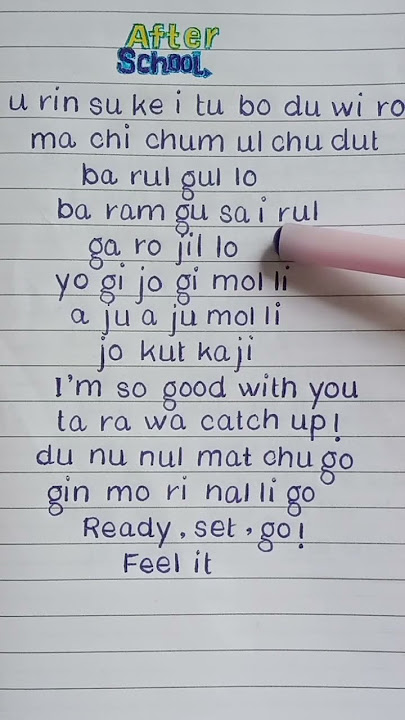 After
School
u rin su ke i tu bo du wi ro
ma chi chum ul chu dut
ba rul gul lo
ba ram gu sa i rul
ga ro jil lo
yo gi jo gi mol li
a ju a ju mol li
jo kut ka ji
I'm so good with you
ta ra wa catch up!
du nu nul mat chu go
gin mo ri nal li go
Ready, set, go!
Feel it